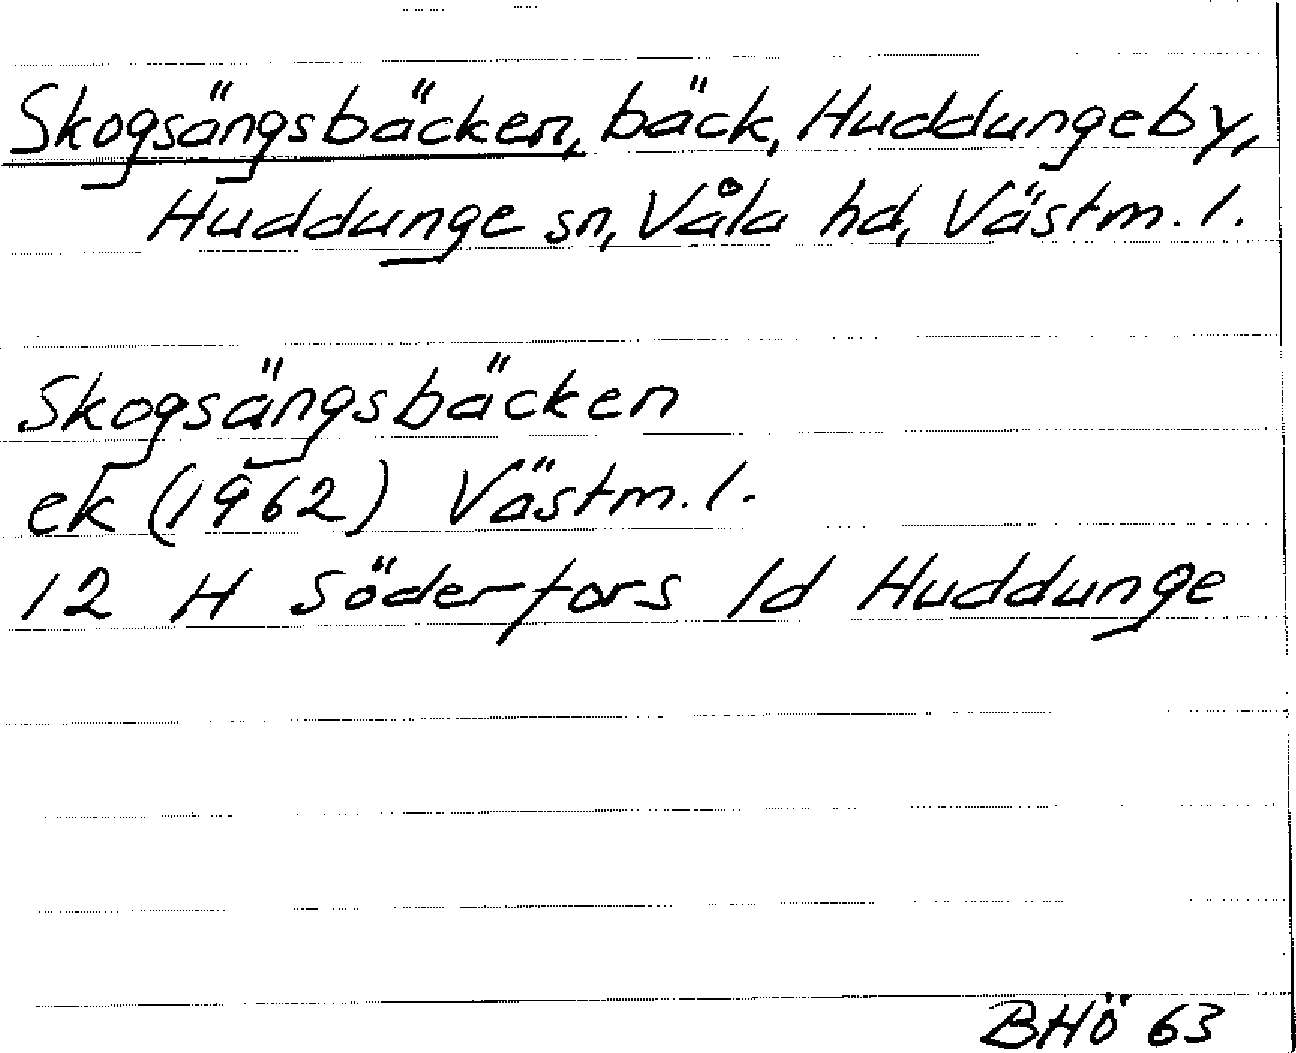 Skogsängsbäcken, bäck, Huddungeby,
Huddunge sn, Våla hd, Västm. l.
Skogsängsbäcken
ek (1962) Västm. l.
12 H Söderfors 1d Huddunge
BHö 63